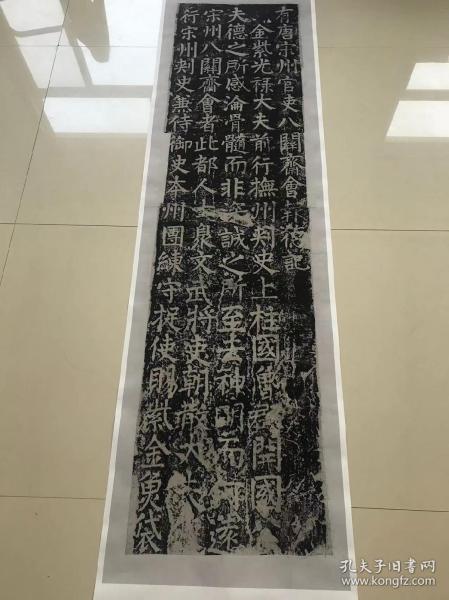 有唐宋州官吏八關齋會報德記
金紫光祿大夫前行撫州刾史上柱國魯郡開國
夫德之所感淪骨髓而非 誠之所至去神明而 遠
宋州八關齋會者此都人士眾文武將吏朝散大夫
行宋州刾史兼侍御史本州團練守捉使賜紫金魚袋
孔夫子旧书网
www.kongfz.com